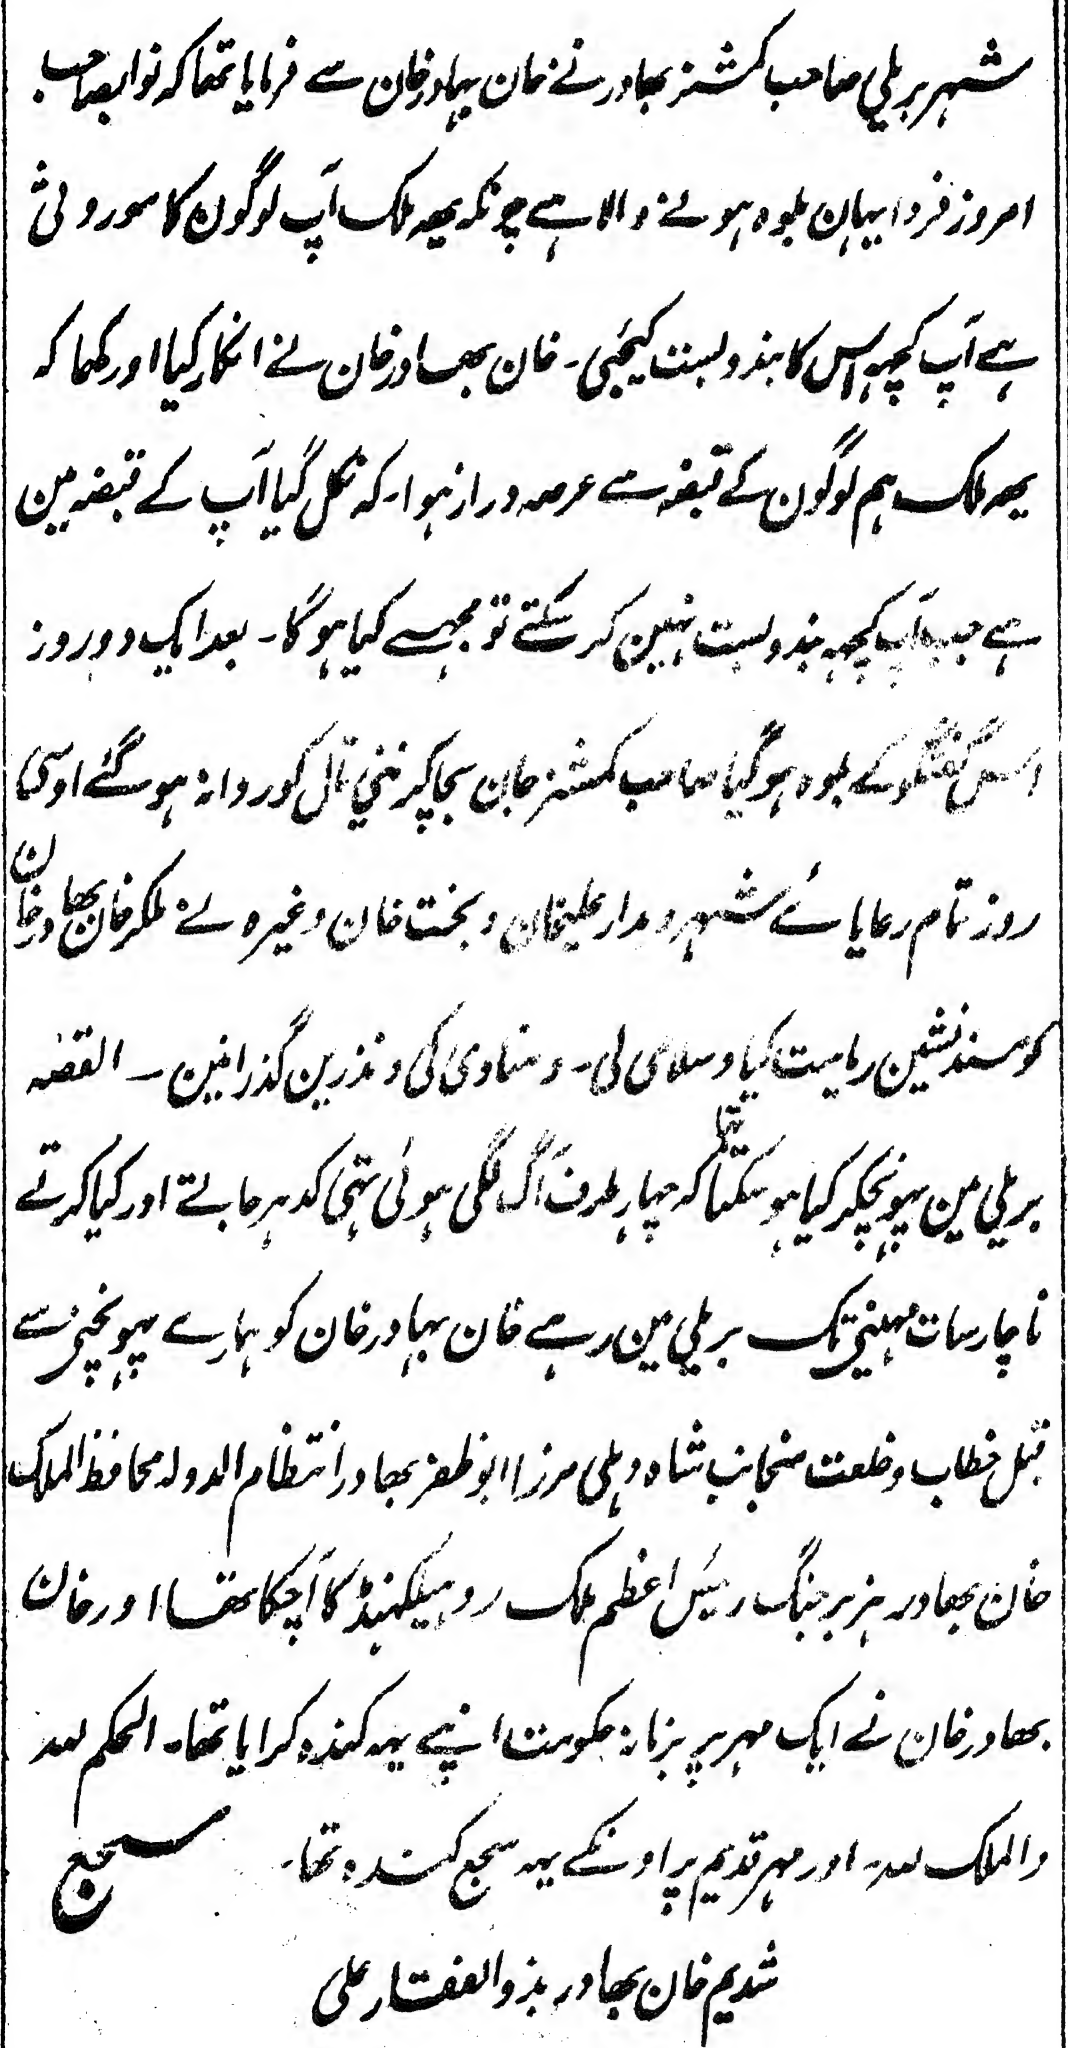 شہر بریلی صاحب کمشنر بھادر نے خان بہادر خان سے فرمایا تھا کہ نوابصاحب
امروز فردا یہان بلوہ ہونے والا ہے چونکہ یہہ ملک آپ لوگون کا موروثی
ہے آپ کچھہ اس کا بندوبست کیجئی۔ خان بھادر خان نے انکار کیا اور کھا کہ
یہہ ملک ہم لوگون کے قبضہ سے عرصہ دراز ہوا۔ کہ نکل گیا آپ کے قبضہ مین
ہے جب آپ کچھہ بندوبست نہین کر سکتے تو مجھسے کیا ہوگا۔ بعد ایک دو روز
اس گفتگو کے بلوہ ہوگیا صاحب کمشنر جان بچا کر نینی تال کو روانہ ہو گئے اوسی
روز تمام رعایائے شہر و مدار علیخان و بخت خان وغیرہ نے ملکر خان بھادر خان
کو مسند نشین ریاست کیا و سلامی لی۔ و منادی کی و نذرین گذرانین ۔ القصہ
بریلی مین پہونچکر کیا ہو سکتا تھا کہ چہار طرف آگ لگی ہوئی تھی کدہر جاتے اور کیا کرتے
ناچار سات مہینی تک بریلی مین رہے خان بہادر خان کو ہمارے پہونچنی سے
قبل خطاب و خلعت منجانب شاہ دہلی مرزا ابو ظفر بھادر انتظام الدولہ محافظ الملک
خان بھادر ہزبر جنگ رئیس اعظم ملک روہیلکھنڈ کا آچکا تھا اور خان
بھادر خان نے ایک مہر پر بزمانہ حکومت اپنے یہہ کندہ کرایا تھا۔ الحکم للہ
والملک للہ۔ اور مہر قدیم پر اونکے یہہ سجع کندہ تھا۔ سجع
شدیم خان بھادر بذوالفقار علی